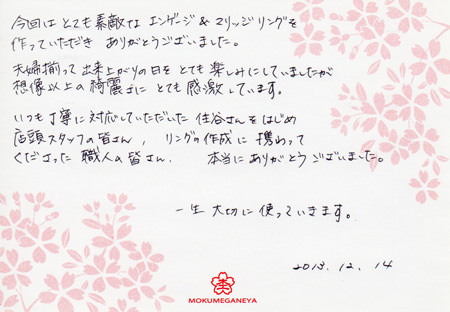 今回は とても素敵な エンゲージ & マリッジリングを
作っていただき ありがとうございました。
夫婦揃って出来上がりの日を とても楽しみにしていましたが
想像以上の綺麗さに とても感激しています。
いつも丁寧に対応していただいた 住谷さんをはじめ
店頭スタッフの皆さん, リングの作成に携わって
くださった 職人の皆さん, 本当にありがとうございました。
一生 大切に使っていきます。
2013.12.14
MOKUMEGANEYA